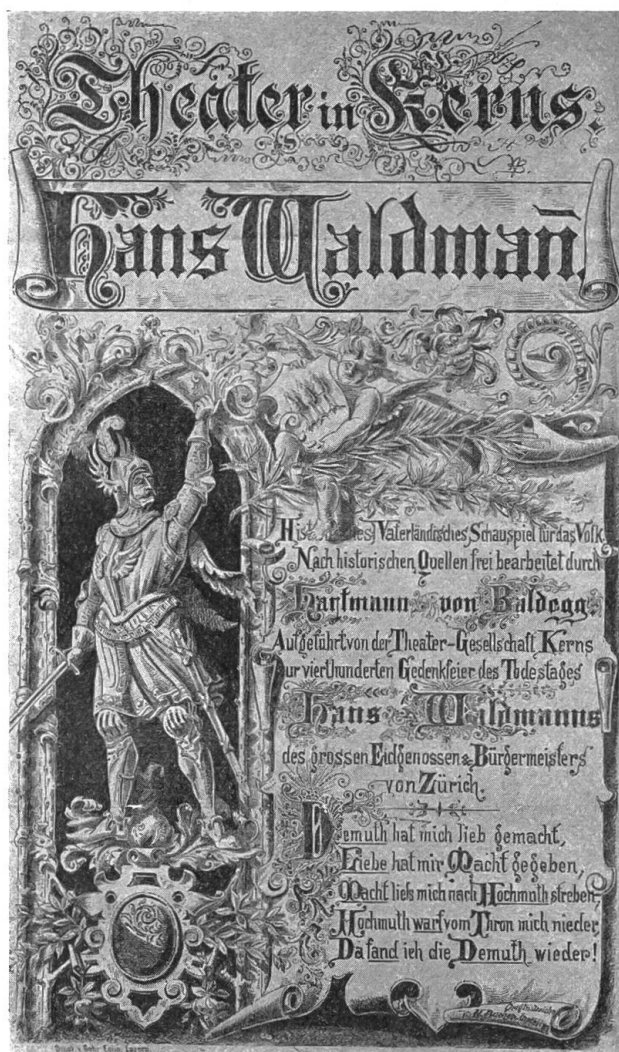 Theater in Kerns.
Hans Waldman̄.
Vaterländisches Schauspiel für das Volk.
Nach historischen Quellen frei bearbeitet durch
Hartmann von Baldegg.
Aufgeführt von der Theater-Gesellschaft Kerns
zur vierthunderten Gedenkfeier des Todestages
Hans Waldmanns
des grossen Eidgenossen & Bürgermeisters
von Zürich.
Demuth hat mich lieb gemacht,
Liebe hat mir Macht gegeben,
Macht liess mich nach Hochmuth streben,
Hochmuth warf vom Thron mich nieder,
Da fand ich die Demuth wieder!